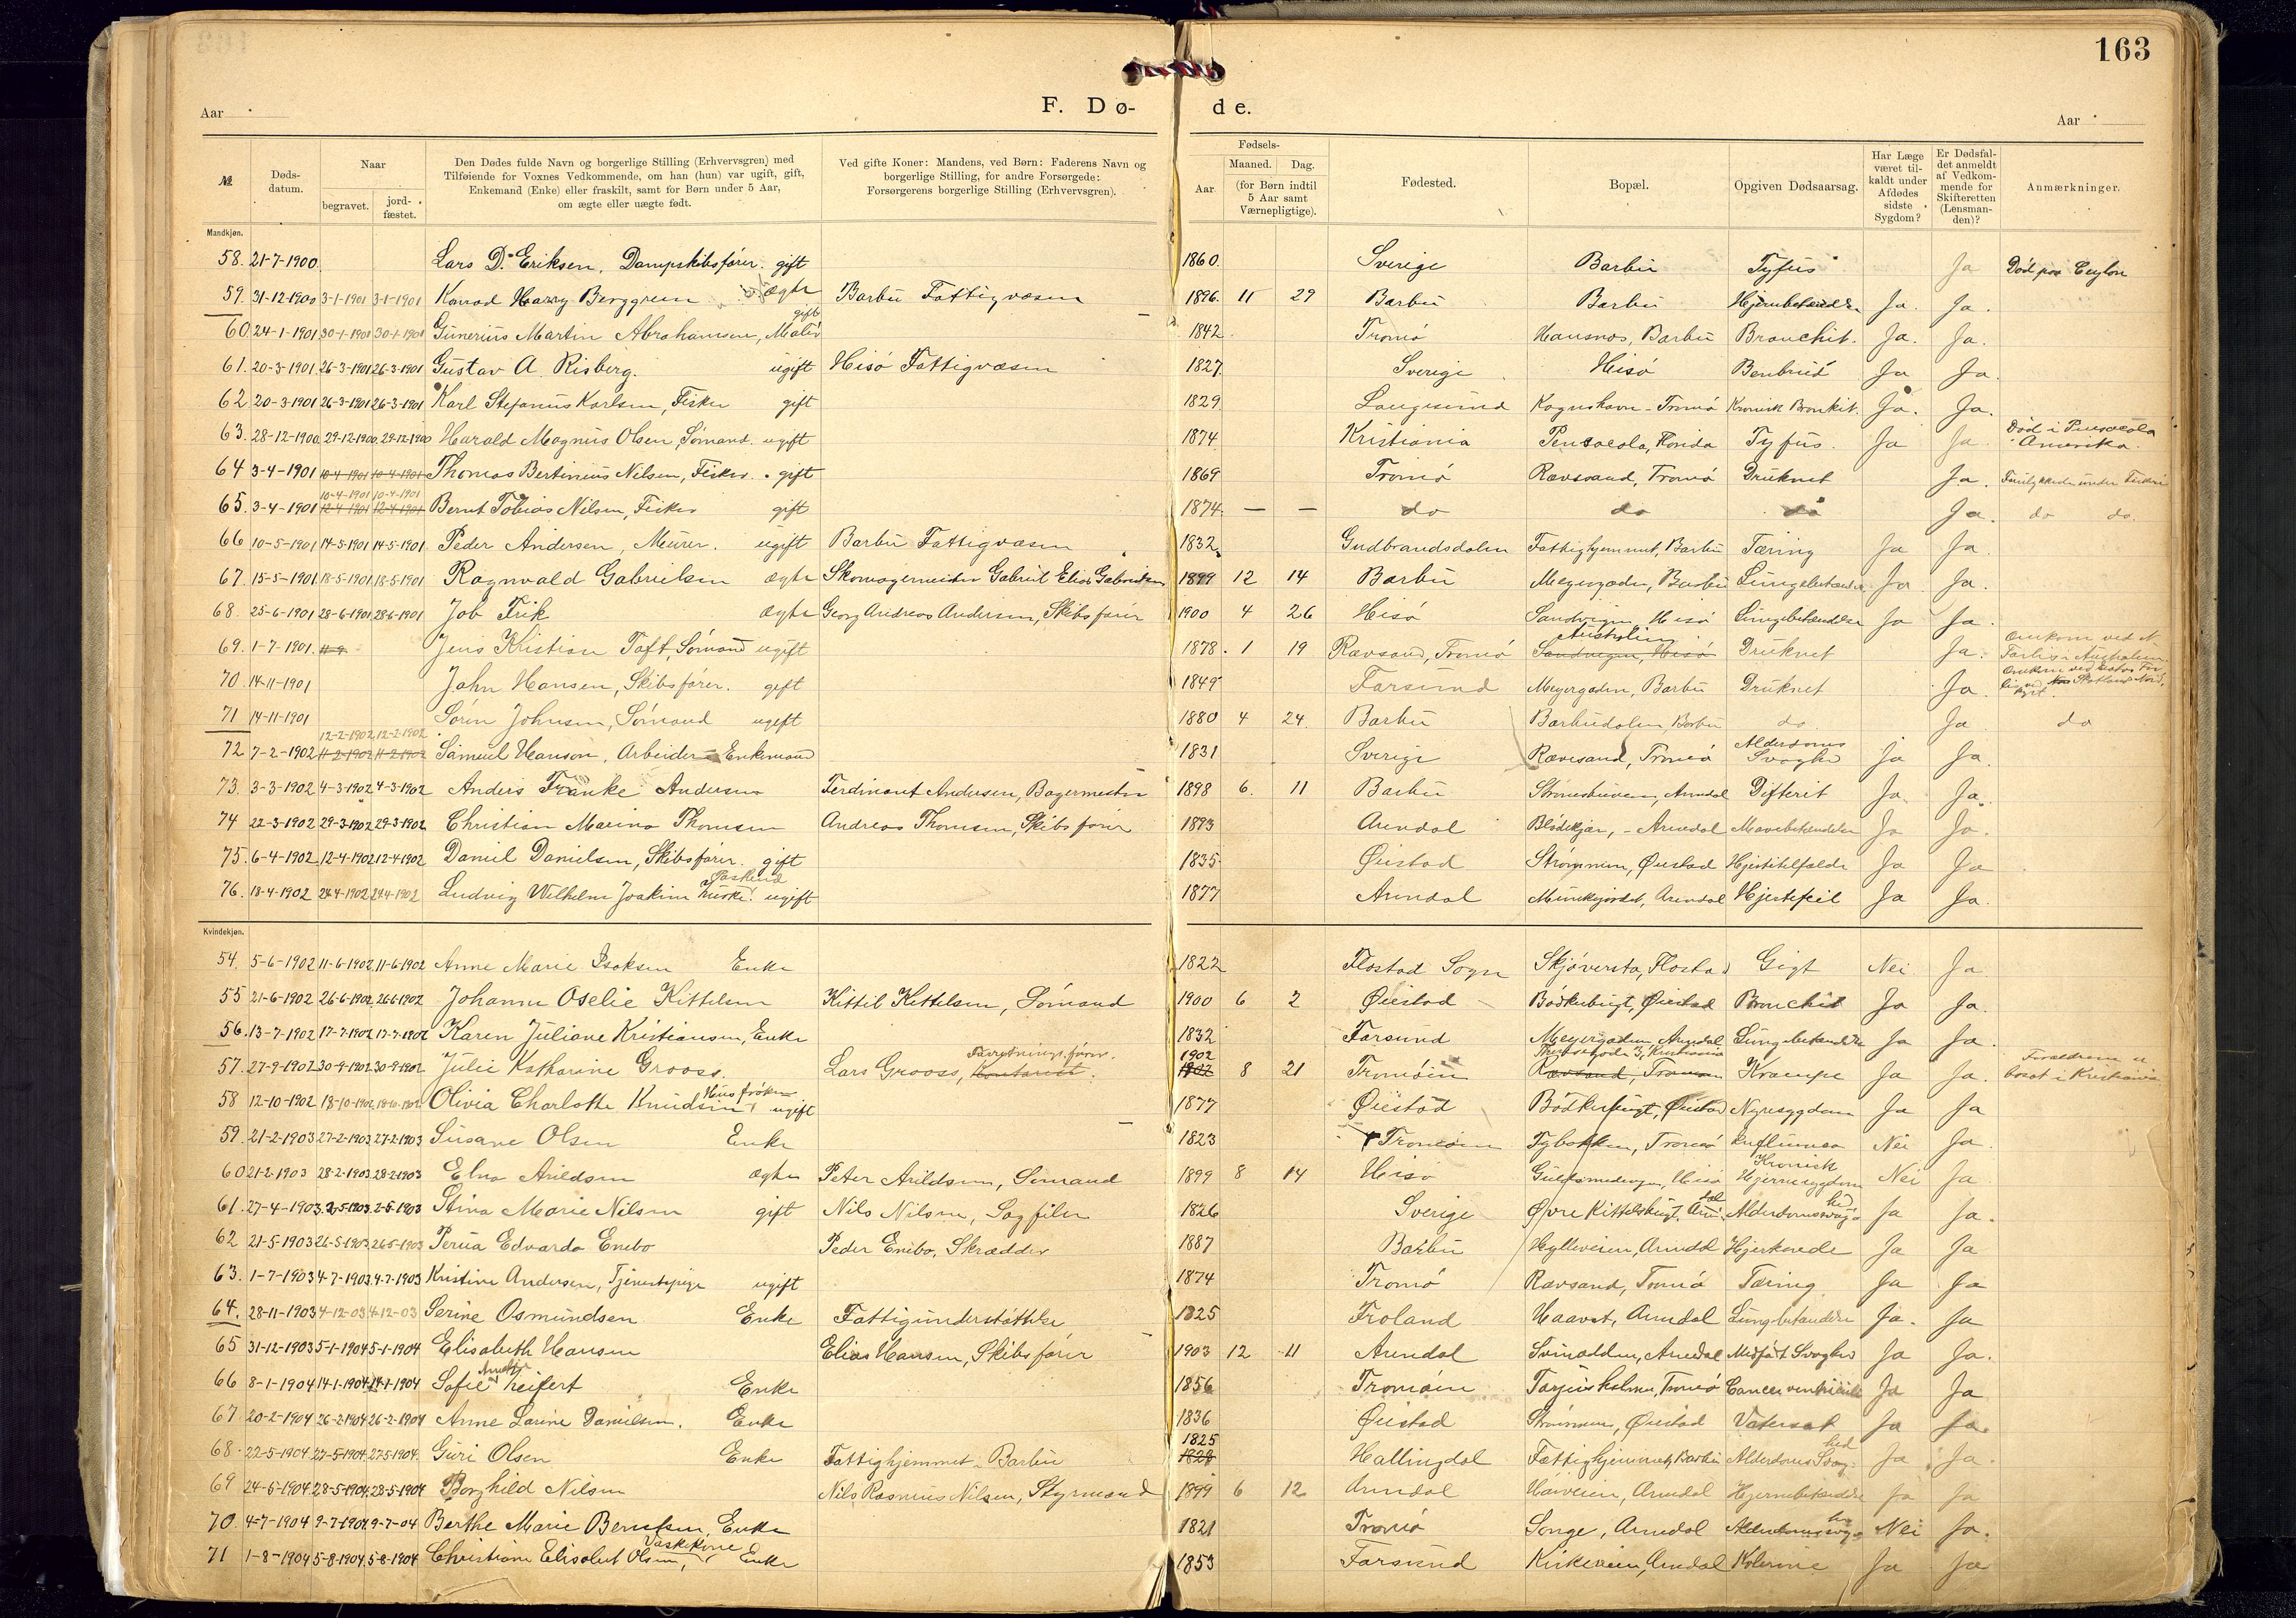 163
Aar
F. Dø-
de.
Aar
№
Døds-
datum.
Naar
begravet.
jord-
fæstet.
Den Dødes fulde Navn og borgerlige Stilling (Erhvervsgren) med
Tilføiende for Voxnes Vedkommende, om han (hun) var ugift, gift,
Enkemand (Enke) eller fraskilt, samt for Børn under 5 Aar,
om ægte eller uægte født.
Ved gifte Koner: Mandens, ved Børn: Faderens Navn og
borgerlige Stilling, for andre Forsørgede:
Forsørgerens borgerlige Stilling (Erhvervsgren).
Fødsels-
Aar.
Maaned.
Dag.
(for Børn indtil
5 Aar samt
Værnepligtige).
Fødested.
Bopæl.
Opgiven Dødsaarsag.
Har Læge
været til-
kaldt under
Afdødes
sidste
Sygdom?
Er Dødsfal-
det anmeldt
af Vedkom-
mende for
Skifteretten
(Lensman-
den)?
Anmærkninger.
Mandkjøn.
58. 21-7-1900. Lars D. Eriksen, Dampskibsfører. gift 1860. Sverige Barbu Tyfus Ja Død paa Ceylon
59. 31-12-1900 3-1-1901 3-1-1901 Konrad Harry Berggren ægte Barbu Fattigvæsen 1896. 11 29 Barbu Barbu Hjernebetændelse Ja. Ja.
60 24-1-1901 30-1-1901 30-1-1901 Gunerius Martin Abrahamsen, Maler gift 1842 Tromø Hausnes, Barbu Bronchit. Ja. Ja.
61. 20-3-1901 26-3-1901 26-3-1901 Gustav A. Risberg. ugift Hisø Fattigvæsen 1827. Sverige Hisø Benbrud Ja Ja.
62 20-3-1901 26-3-1901 26-3-1901 Karl Stefanus Karlsen, Fisker gift 1829. Langesund Kognshavn - Tromø Kronisk Bronkit. Ja. Ja.
63. 28-12-1900 29-12-1900 29-12-1900 Harald Magnus Olsen, Sømand. ugift 1874 Kristiania Pensacola, Florida Tyfus. Ja Ja Død i Pensacola Amerika.
64 3-4-1901 10-4-1901 10-4-1901 Thomas Bertinius Nilsen, Fisker. gift 1869 Tromø Rævesand, Tromø Druknet Ja.
65. 3-4-1901 10-4-1901 10-4-1901 12-4-1901 12-4-1901 Bernt Tobias Nilsen, Fisker gift 1874. — — do do do Ja. do do.
66 10-5-1901 14-5-1901 14-5-1901. Peder Andersen, Murer. ugift Barbu Fattigvæsen 1832 Gudbrandsdalen Fattighjemmet, Barbu Tæring Ja Ja.
67. 15-5-1901 18-5-1901 18-5-1901 Ragnvald Gabrielsen ægte Skomagermester Gabriel Elias Gabrielsen 1899 12 14 Barbu Meyergaden, Barbu Lungebetændelse Ja Ja.
68. 25-6-1901 28-6-1901 28-6-1901 Job Frik ægte Georg Andreas Andersen, Skibsfører 1900 4 26 Hisø Sandvigen, Hisø Lungebetændelse Ja Ja.
69. 1-7-1901. Jens Kristian Toft, Sømand ugift 1878. 1 19 Rævsand, Tromø Australien Sandvigen, Hisø Druknet Ja.
70. 14-11-1901 John Hansen, Skibsfører. gift 1849 Farsund Meyergaden, Barbu Druknet Ja.
71 14-11-1901 Søren Johnsen, Sømand ugift 1880 4 24. Barbu Barbudalen, Barbu do Ja do
72 7-2-1902 12-2-1902 12-2-1902. 11-2-1902 11-2-1902 Samuel Hanson, Arbeider - Enkemand 1831 Sverige Rævesand, Tromø Alderdoms Svaghed Ja Ja.
73. 3-3-1902 4-3-1902 4-3-1902 Anders Franke Andersen Ferdinant Andersen, Bagermester 1898 6. 11 Barbu Strømsbuveien, Arendal Difterit Ja. Ja.
74 22-3-1902 29-3-1902 29-3-1902 Christian Marino Thomsen Andreas Thomsen, Skibsfører 1893 Arendal Blødekjær, - Arendal Mavebetændelse Ja Ja.
75. 6-4-1902 12-4-1902 12-4-1902 Daniel Danielsen, Skibsfører. gift 1835 Øiestad Strømmen, Øiestad Hjertetilfælde Ja Ja
76. 18-4-1902 24-4-1902 24-4-1902 Ludvig Wilhelm Joakim ugift 1877 Arendal Munkejordet, Arendal Hjertefeil Ja Ja.
Kvindekjøn.
54. 5-6-1902 11-6-1902 11-6-1902 Anne Marie Isaksen Enke 1822 Flostad Sogn Skjøversta, Flostad Gigt Nei Ja
55 21-6-1902 26-6-1902 26-6-1902 Johanne Oselie Kittelsen Kittil Kittelsen, Sømand 1900 6 2 Øiestad Bødkerbugt, Øiestad Bronchit Ja Ja.
56. 13-7-1902 17-7-1902 17-7-1902 Karen Juliane Kristiansen, Enke 1832 Farsund Meyergaden, Arendal Lungebetændelse Ja Ja.
57. 27-9-1902 30-9-1902 30-9-1902 Julie Katharine Grooss. Lars Grooss, Forretningsfører. Kontorist. 1902 1902 8 21 Tromøien Kristiania Rævsand, Tromøen Krampe Ja Ja. Forældrene er bosat i Kristiania
58 12-10-1902 18-10-1902 18-10-1902 Olivia Charlotte Knudsen, Husfrøken ugift 1877 Øiestad Bødkerbugt, Øiestad Nyresygdom Ja Ja
59. 21-2-1903 27-2-1903 27-2-1903 Susane Olsen Enke 1823 Tromøen Tybakken, Tromø Influensa Nei Ja
60 21-2-1903 28-2-1903 28-2-1903 Elna Arildsen ægte Peter Arildsen, Sømand 1899 8 14 Hisø Guldsmedvigen, Hisø Kronisk Hjernesygdom Nei Ja
61. 27-4-1903 2-5-1903 2-5-1903 Stina Marie Nilsen gift Nils Nilsen, Sagfiler 1826 Sverige Øvre Kittelsbugt, Arendal Alderdomssvaghed Ja Ja.
62 21-5-1903 26-5-1903 26-5-1903 Perua Edvarda Enebo Peder Enebo, Skrædder 1887 Barbu Hylleveien, Arendal Ja Ja
63. 1-7-1903 4-7-1903 4-7-1903 Kristine Andersen, Tjenestepige ugift 1874 Tromø Rævsand, Tromø Tæring Ja Ja
64. 28-11-1903 4-12-03 4-12-03 Serine Osmundsen Enke Fattigunderstøttelse 1825 Froland Haavet, Arendal Lungebetændelse Ja. Ja
65 31-12-1903 5-1-1904 5-1-1904 Elisabeth Hansen Elias Hansen, Skibsfører 1903 12 11 Arendal Svinodden, Arendal Medfødt Svaghed Ja Ja.
66 8-1-1904 14-1-1904 14-1-1904 Sofie Leifert Enke 1856 Tromøen Torjusholmen, Tromø Cancer ventriculi Ja Ja
67. 20-2-1904 26-2-1904 26-2-1904 Anne Larine Danielsen. Enke 1836 Øiestad Strømmen, Øiestad Vatersot Ja Ja.
68. 22-5-1904 27-5-1904 27-5-1904. Guri Olsen Enke Fattighjemmet i Barbu 1825 1828 Hallingdal Fattighjemmet, Barbu Alderdoms Svaghed Ja Ja.
69 24-5-1904 28-5-1904 28-5-1904 Borghild Nilsen Nils Rasmus Nilsen, Styrmand 1899 6 12 Arendal Høiveien, Arendal Hjernebetændelse Ja Ja
70. 4-7-1904 9-7-1904 9-7-04 Berthe Marie Berntsen, Enke 1821 Tromø Songe, Arendal Alderdomssvaghed Nei Ja.
71 1-8-1904 5-8-1904 5-8-1904 Christiane Elisabet Olsen, Vaskekone Enke 1853 Farsund Kirkeveien, Arendal Kolerine Ja Ja